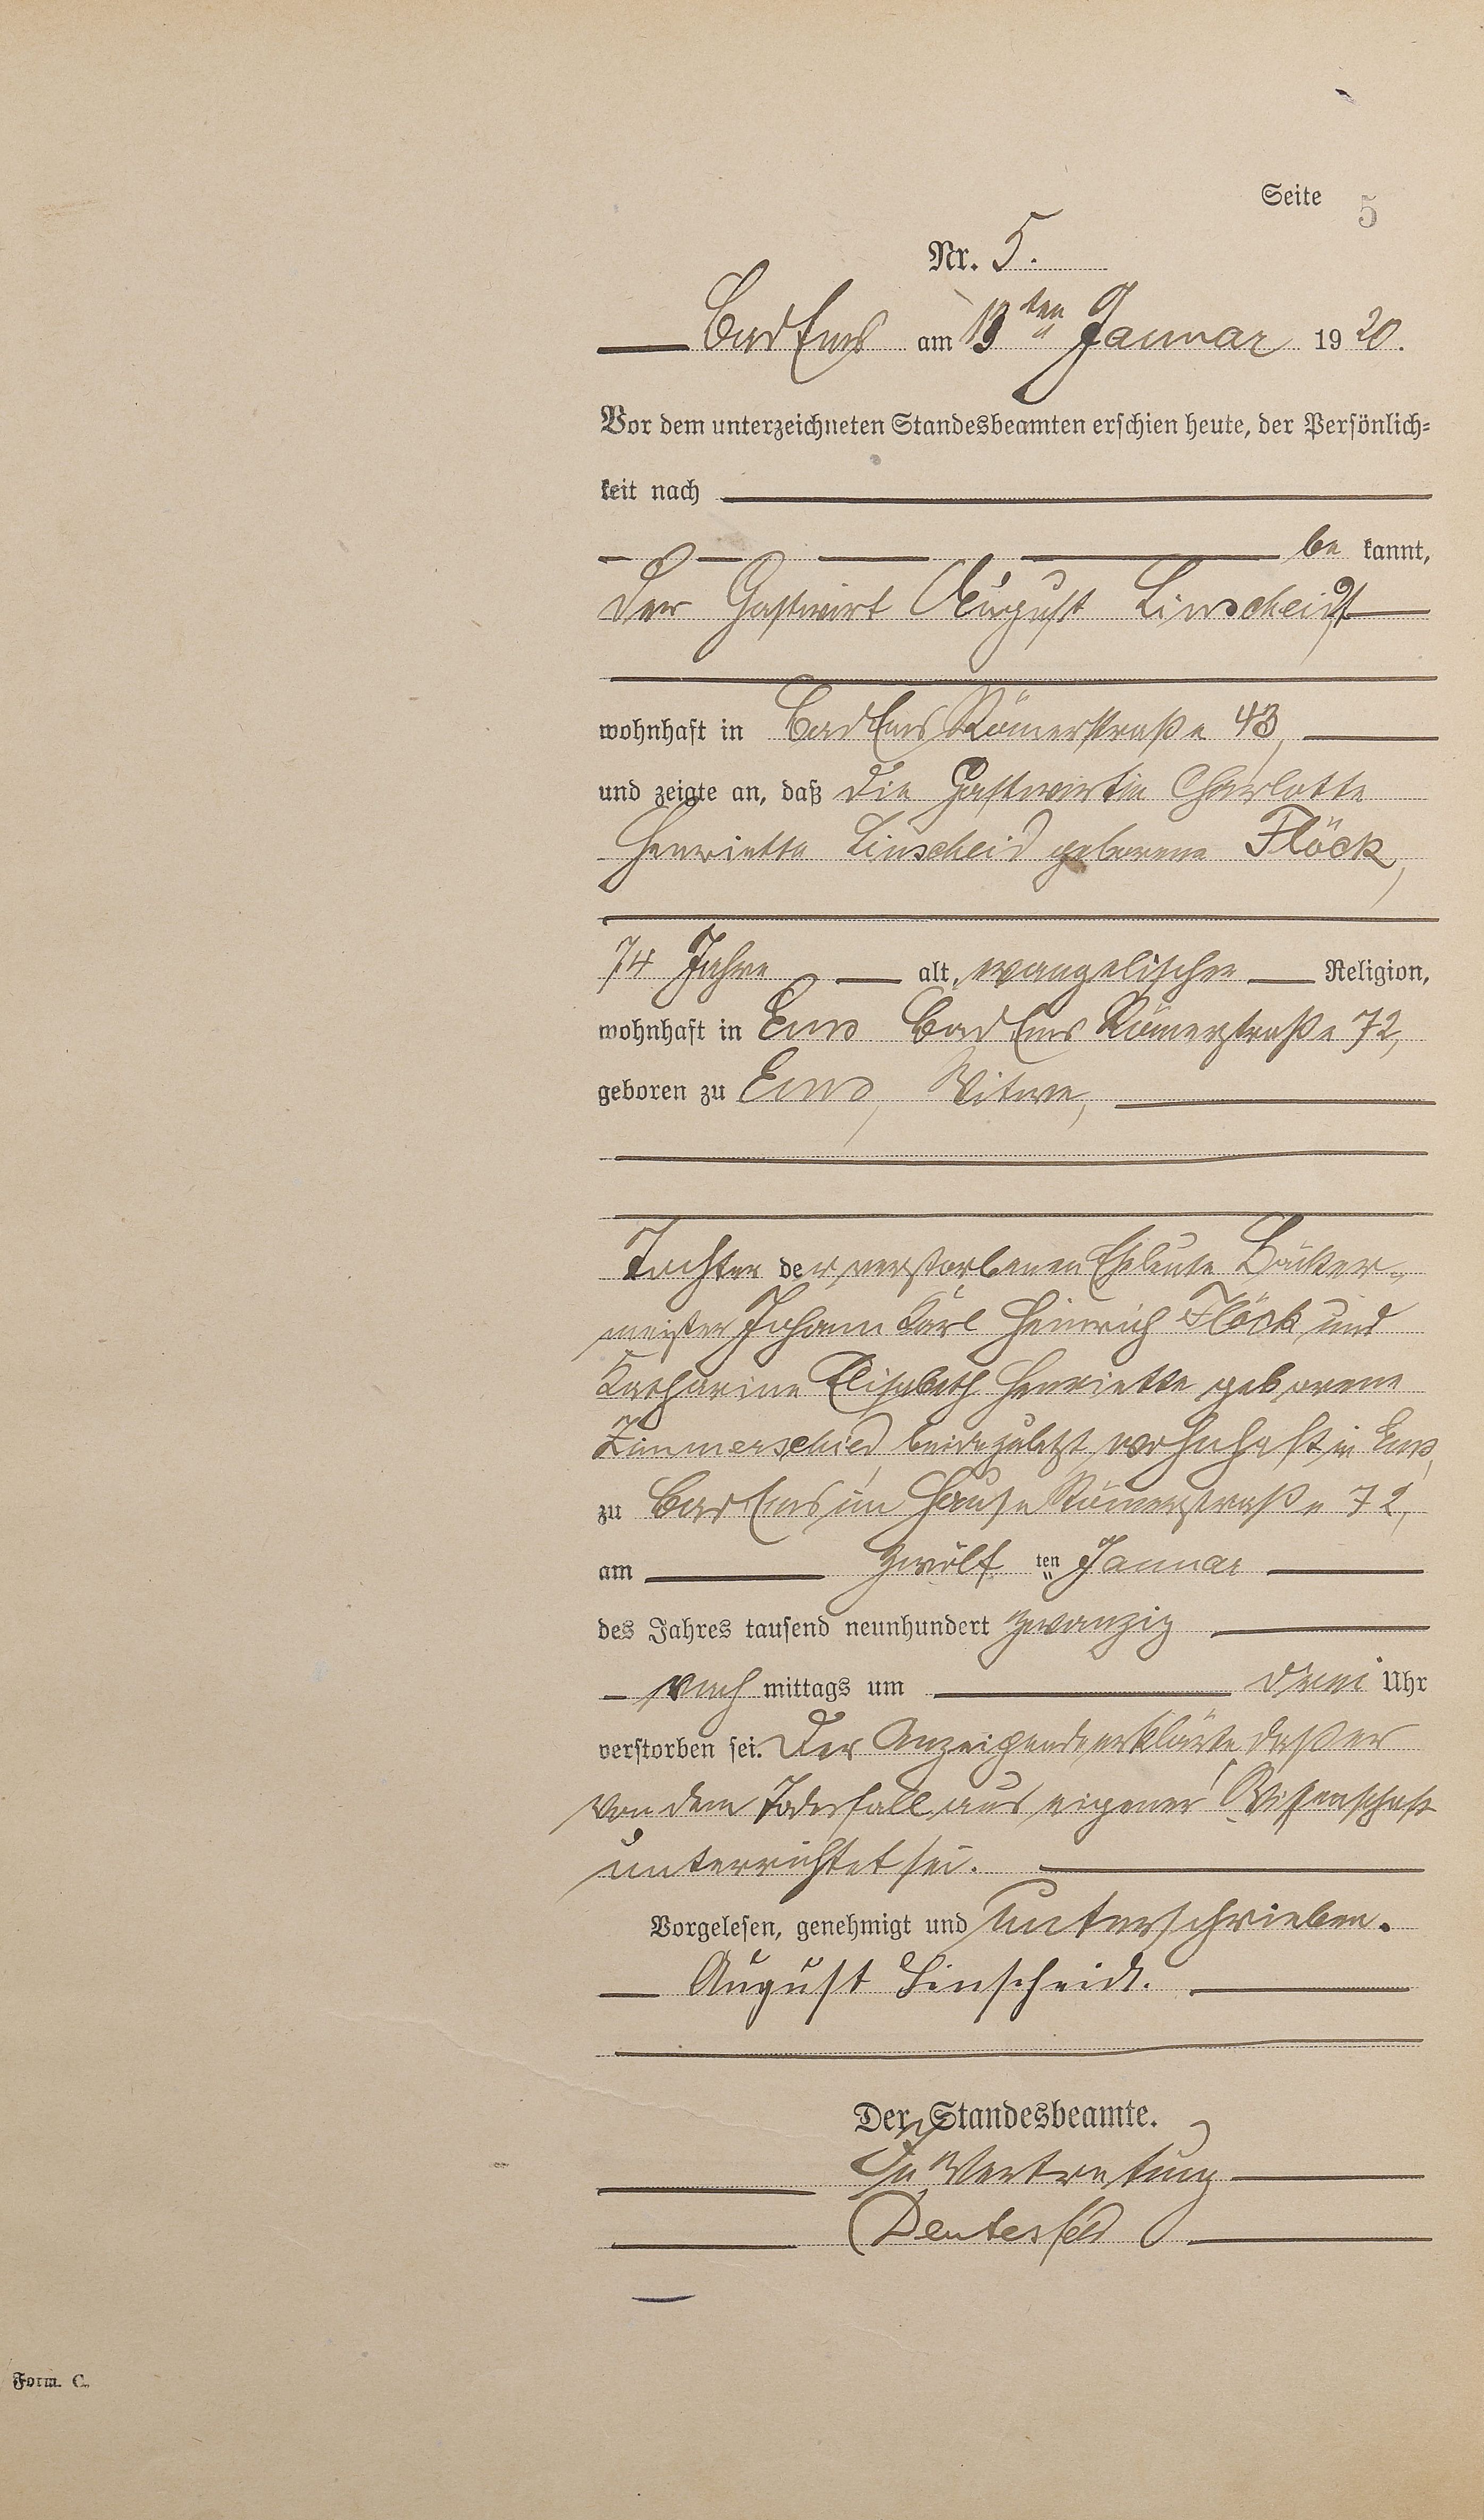 Seite 5
Nr. 5.
Bad Ems am 13ten Januar 1920.
Vor dem unterzeichneten Standesbeamten erschien heute, der Persönlich-
keit nach
be kannt,
der Gastwirt August Linscheidt
wohnhaft in Bad Ems Römerstraße 43,
und zeigte an, daß die Gastwirtin Charlotte
Henriette Linscheid geborene Flöck,
74 Jahre alt, evangelischer Religion,
wohnhaft in Ems Bad Ems Römerstraße 72,
geboren zu Ems, Witwe,
Tochter der verstorbenen Eheleute Bäcker-
meister Johann Karl Heinrich Flöck und
Katharine Elisabeth Henriette geborene
Zimmerschied, beide zuletzt wohnhaft in Ems,
zu Bad Ems im Hause Römerstraße 72,
am zwölf ten Januar
des Jahres tausend neunhundert zwanzig
nach mittags um drei Uhr
verstorben sei. Der Anzeigende erklärte, daß er
von dem Todesfall aus eigener Wissenschaft
unterrichtet sei.
Vorgelesen, genehmigt und unterschrieben.
August Linscheidt.
Der Standesbeamte.
In Vertretung
Form. C.